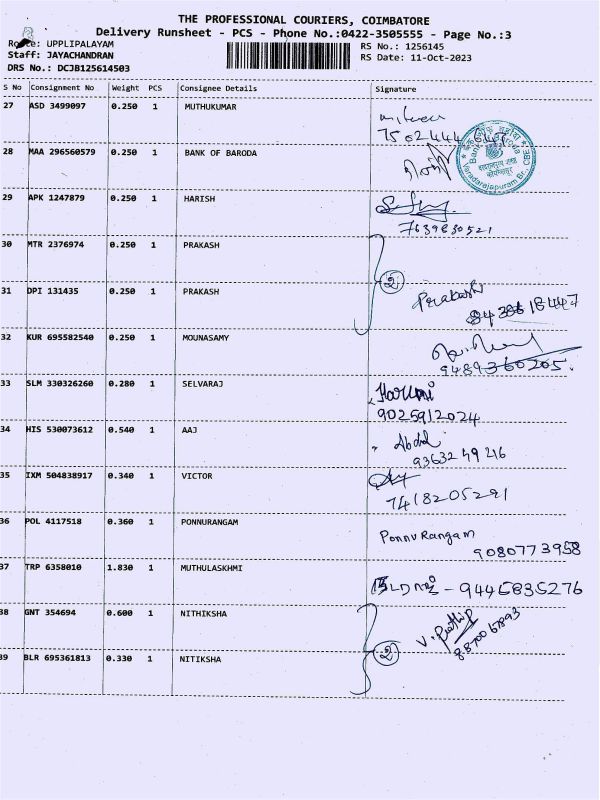 THE PROFESSIONAL COURIERS, COIMBATORE
Delivery Runsheet - PCS - Phone No.:0422-3505555 - Page No.:3
Route: UPPLIPALAYAM
RS No.: 1256145
Staff: JAYACHANDRAN
RS Date: 11-Oct-2023
DRS No.: DCJB125614503
S No Consignment No Weight PCS Consignee Details Signature
27 ASD 3499097 0.250 1 MUTHUKUMAR
28 MAA 296560579 0.250 1 BANK OF BARODA
Bank of Baroda
Varadarajapuram Br., CBE
29 APK 1247879 0.250 1 HARISH
7639830521
30 MTR 2376974 0.250 1 PRAKASH
2
31 DPI 131435 0.250 1 PRAKASH
Prakash
32 KUR 695582540 0.250 1 MOUNASAMY
9489360205.
33 SLM 330326260 0.280 1 SELVARAJ
Harini
9025912024
34 HIS 530073612 0.540 1 AAJ
Abdul
9363249216
35 IXM 504838917 0.340 1 VICTOR
7418205291
36 POL 4117518 0.360 1 PONNURANGAM
PonnuRangam
9080773958
37 TRP 6358010 1.830 1 MUTHULASKHMI
- 9445835276
38 GNT 354694 0.600 1 NITHIKSHA
V. Prathip
8870067893
2
39 BLR 695361813 0.330 1 NITIKSHA